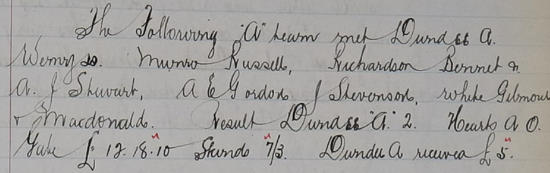 The Following "A" team met Dundee A.
Wemyss. Munro Russell, Richardson Bennet &
A. J Stewart, A E Gordon J Stevenson, White Gilmour
& Macdonald. Result Dundee "A" 2. Hearts A 0.
Gate £ 12.18.10 Stands 7/3. Dundee A receives £ 5.